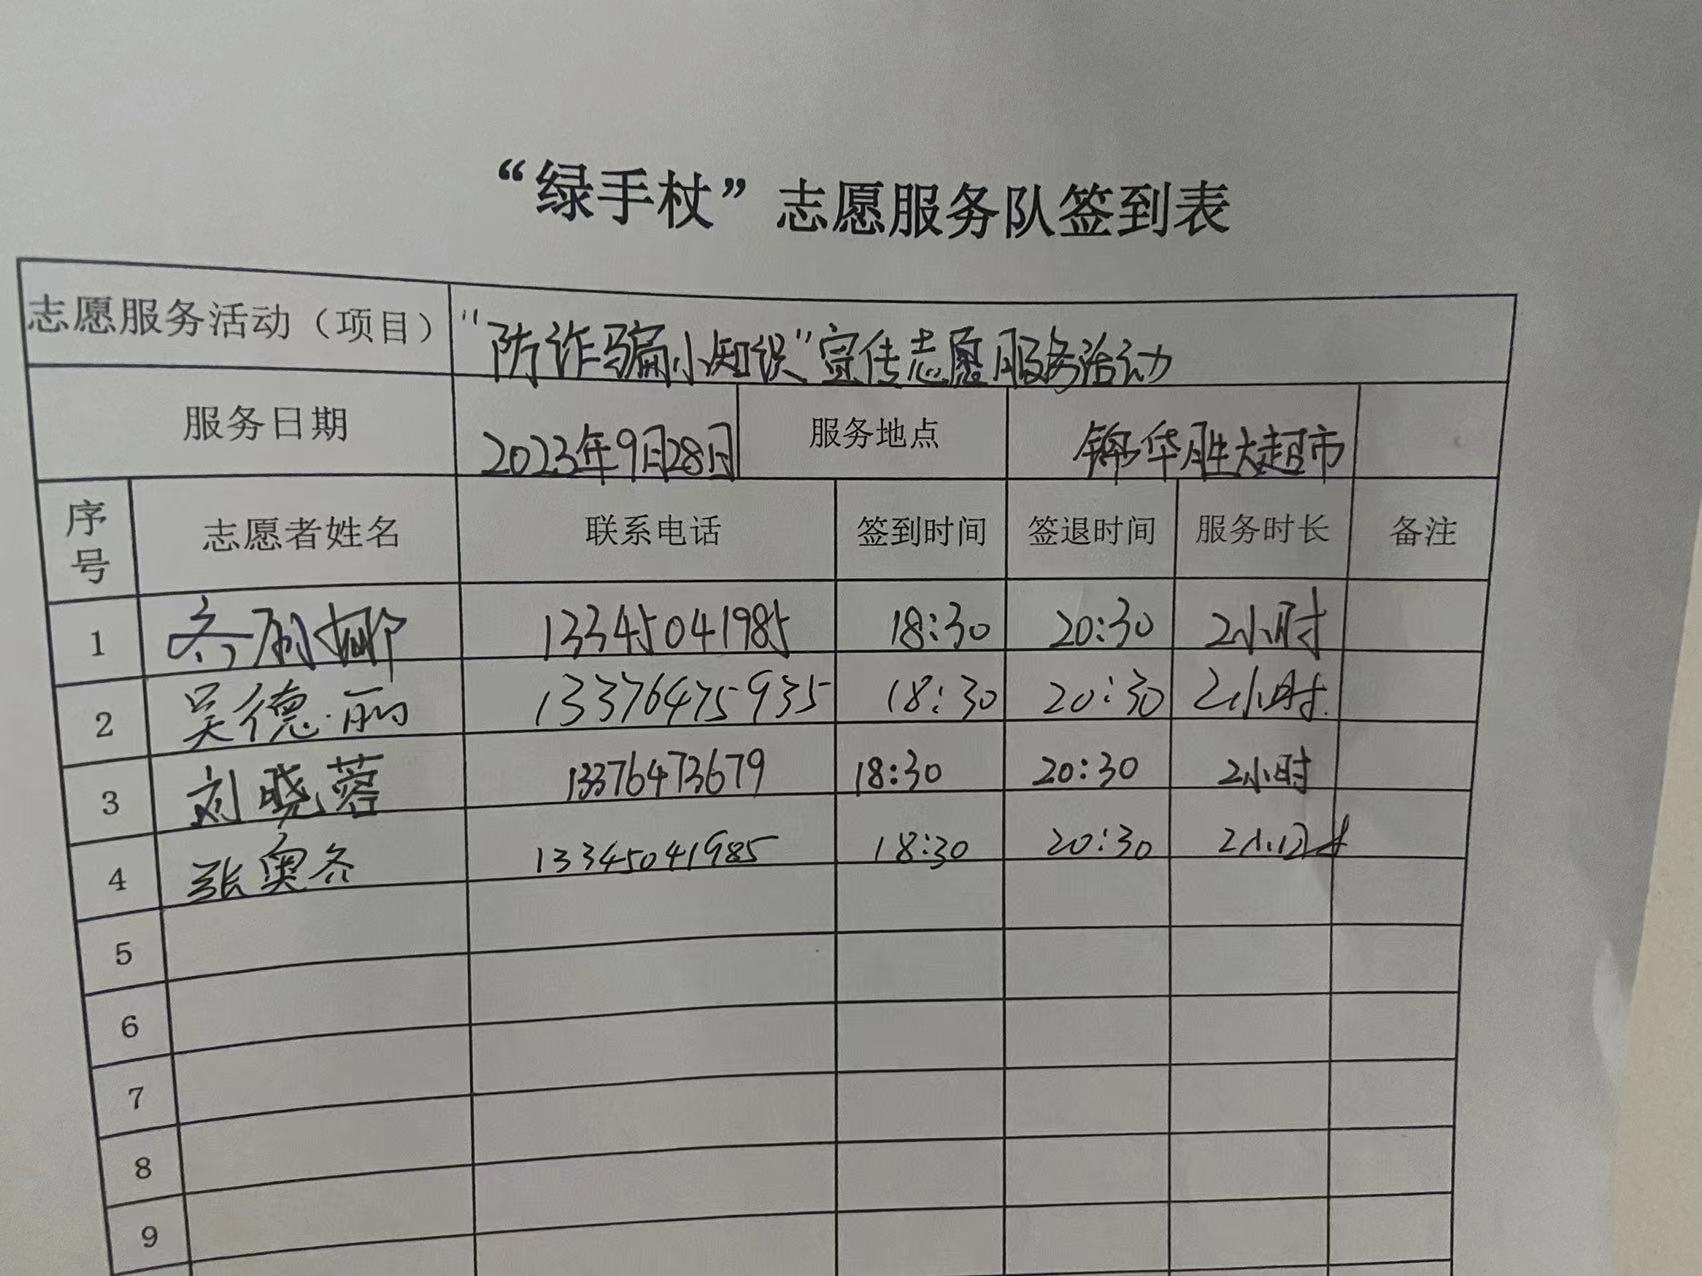 “绿手杖”志愿服务队签到表
志愿服务活动（项目） “防诈骗小知识”宣传志愿服务活动
服务日期 2023年9月28日 服务地点 锦华胜大超市
序号 志愿者姓名 联系电话 签到时间 签退时间 服务时长 备注
1 13345041985 18:30 20:30 2小时
2 吴德丽 13376475935 18:30 20:30 2小时
3 刘晓蓉 13376473679 18:30 20:30 2小时
4 张奥冬 13345041985 18:30 20:30 2小时
5
6
7
8
9